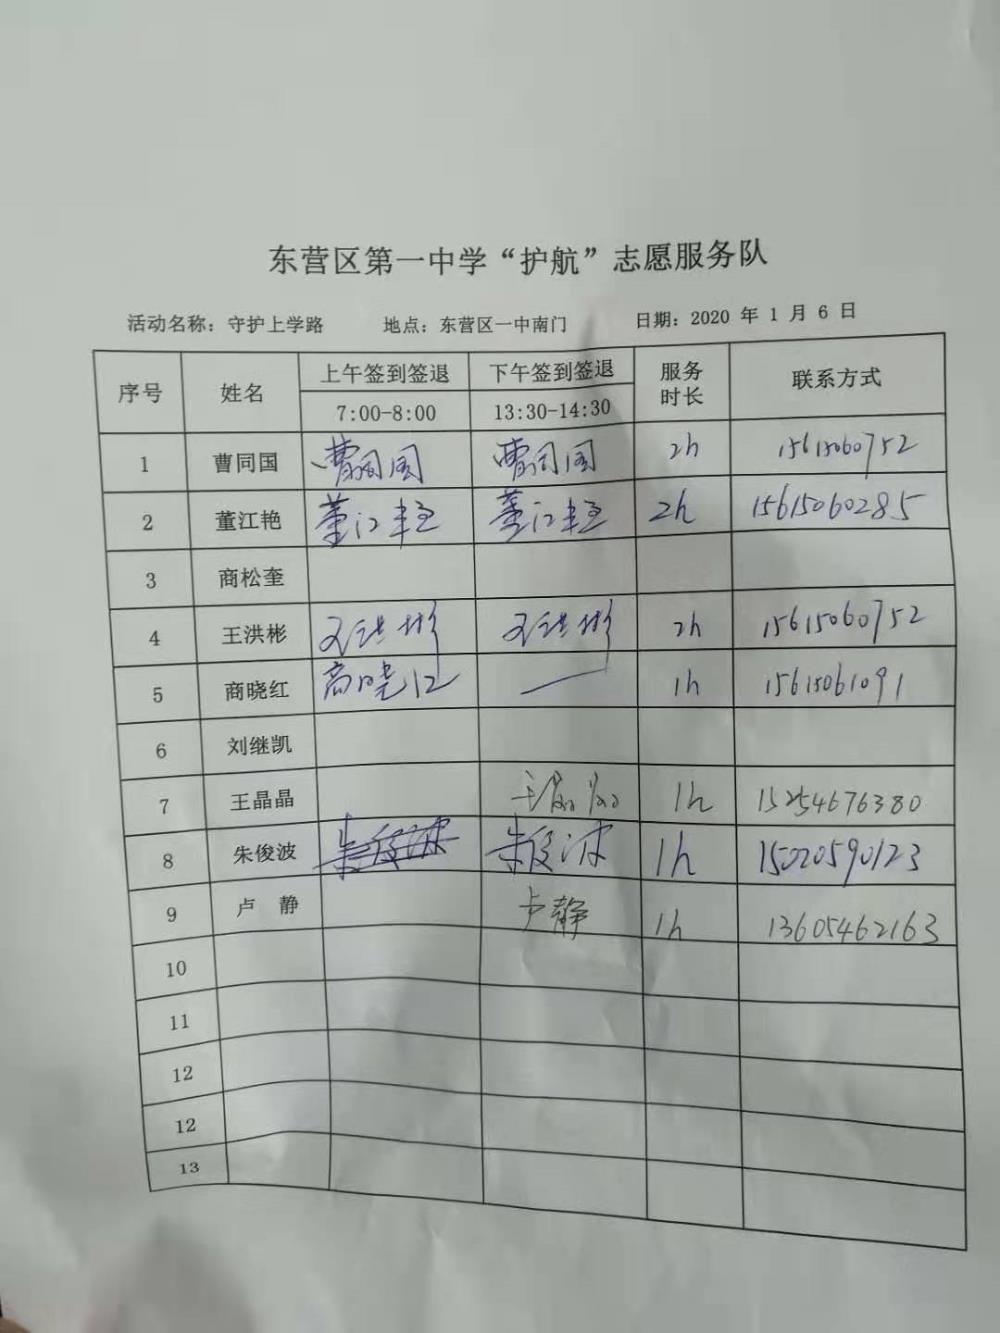 东营区第一中学“护航”志愿服务队
活动名称：守护上学路 地点：东营区一中南门 日期：2020 年 1 月 6 日
序号 姓名 上午签到签退 下午签到签退 服务时长 联系方式
7:00-8:00 13:30-14:30
1 曹同国 曹同国 曹同国 2h 15615060752
2 董江艳 董江艳 董江艳 2h 15615060285
3 商松奎
4 王洪彬 王洪彬 王洪彬 2h 15615060752
5 商晓红 商晓红 — 1h 15615061091
6 刘继凯
7 王晶晶 王晶晶 1h 15254676380
8 朱俊波 朱俊波 朱俊波 1h 15020590123
9 卢 静 卢静 1h 13605462163
10
11
12
12
13